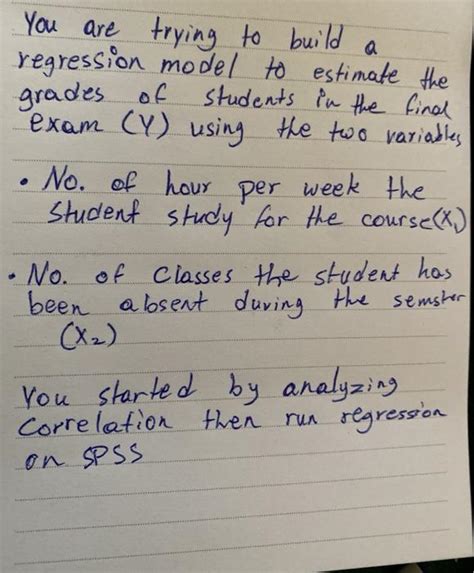 You are trying to build a
regression model to estimate the
grades of students in the final
exam (Y) using the two variables
• No. of hour per week the
student study for the course(X₁)
• No. of classes the student has
been absent during the semster
(X₂)
You started by analyzing
Correlation then run regression
on SPSS